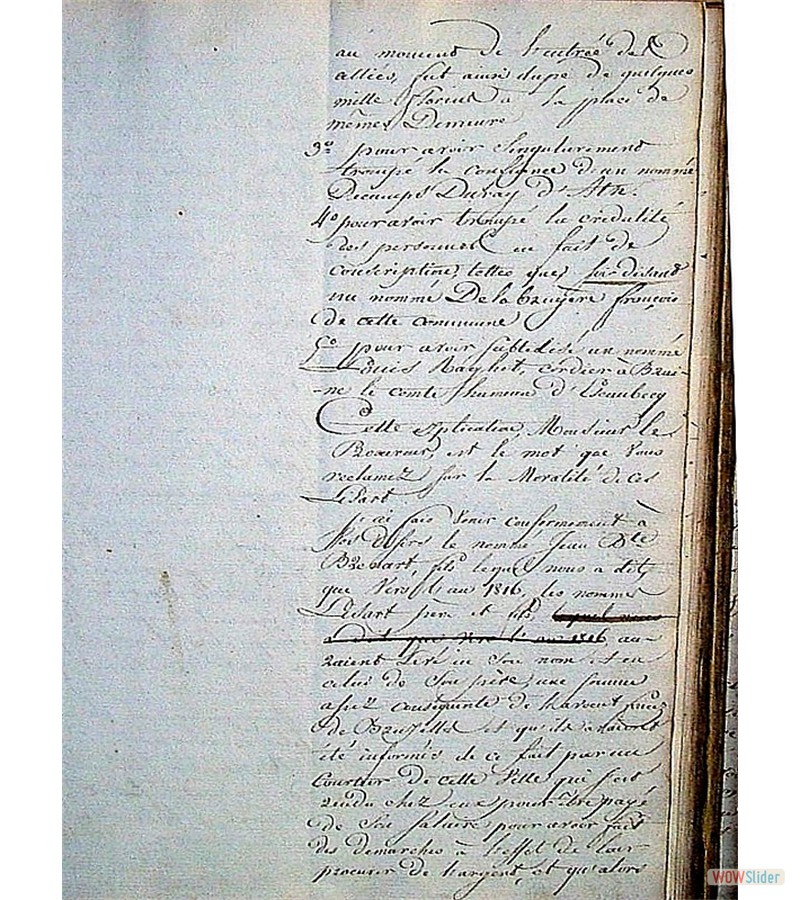 au moment de l'entrée des
alliés, fut ainsi dupe de quelques
mille florins à la place de
mêmes Demeure
3° pour avoir singulierement
trompé la confiance d'un nommé
Decamps Duray d'Ath.
4° pour avoir trompé la credulité
des personnes en fait de
conscription, telles que, soi disant
un nommé De la bruyere françois
de cette commune
5° pour avoir un nommé
Louis cordier à Brai-
ne le comte d'Ecaubecq
Cette explication, Monsieur le
Procureur, est le mot que vous
reclamez sur la Moralité de ces
Lisart
j'ai fait venir conformement à
vos desirs le nommé Jean Bte
fils lequel nous a dit,
que vers l'an 1816, les nommés
Lisart père et fils, lequel nous
a dit que vers l'an 1816 au-
raient levé en son nom et en
celui de son père, une somme
assez consequente de l'argent
de Bruxelles et qu'ils avaient
été informés de ce fait par un
Courtier de cette Ville qui s'est
rendu chez eux pour être payé
de son salaire pour avoir fait
des demarches à l'effet de leur
procurer de l'argent, et qu'alors
WOWSlider